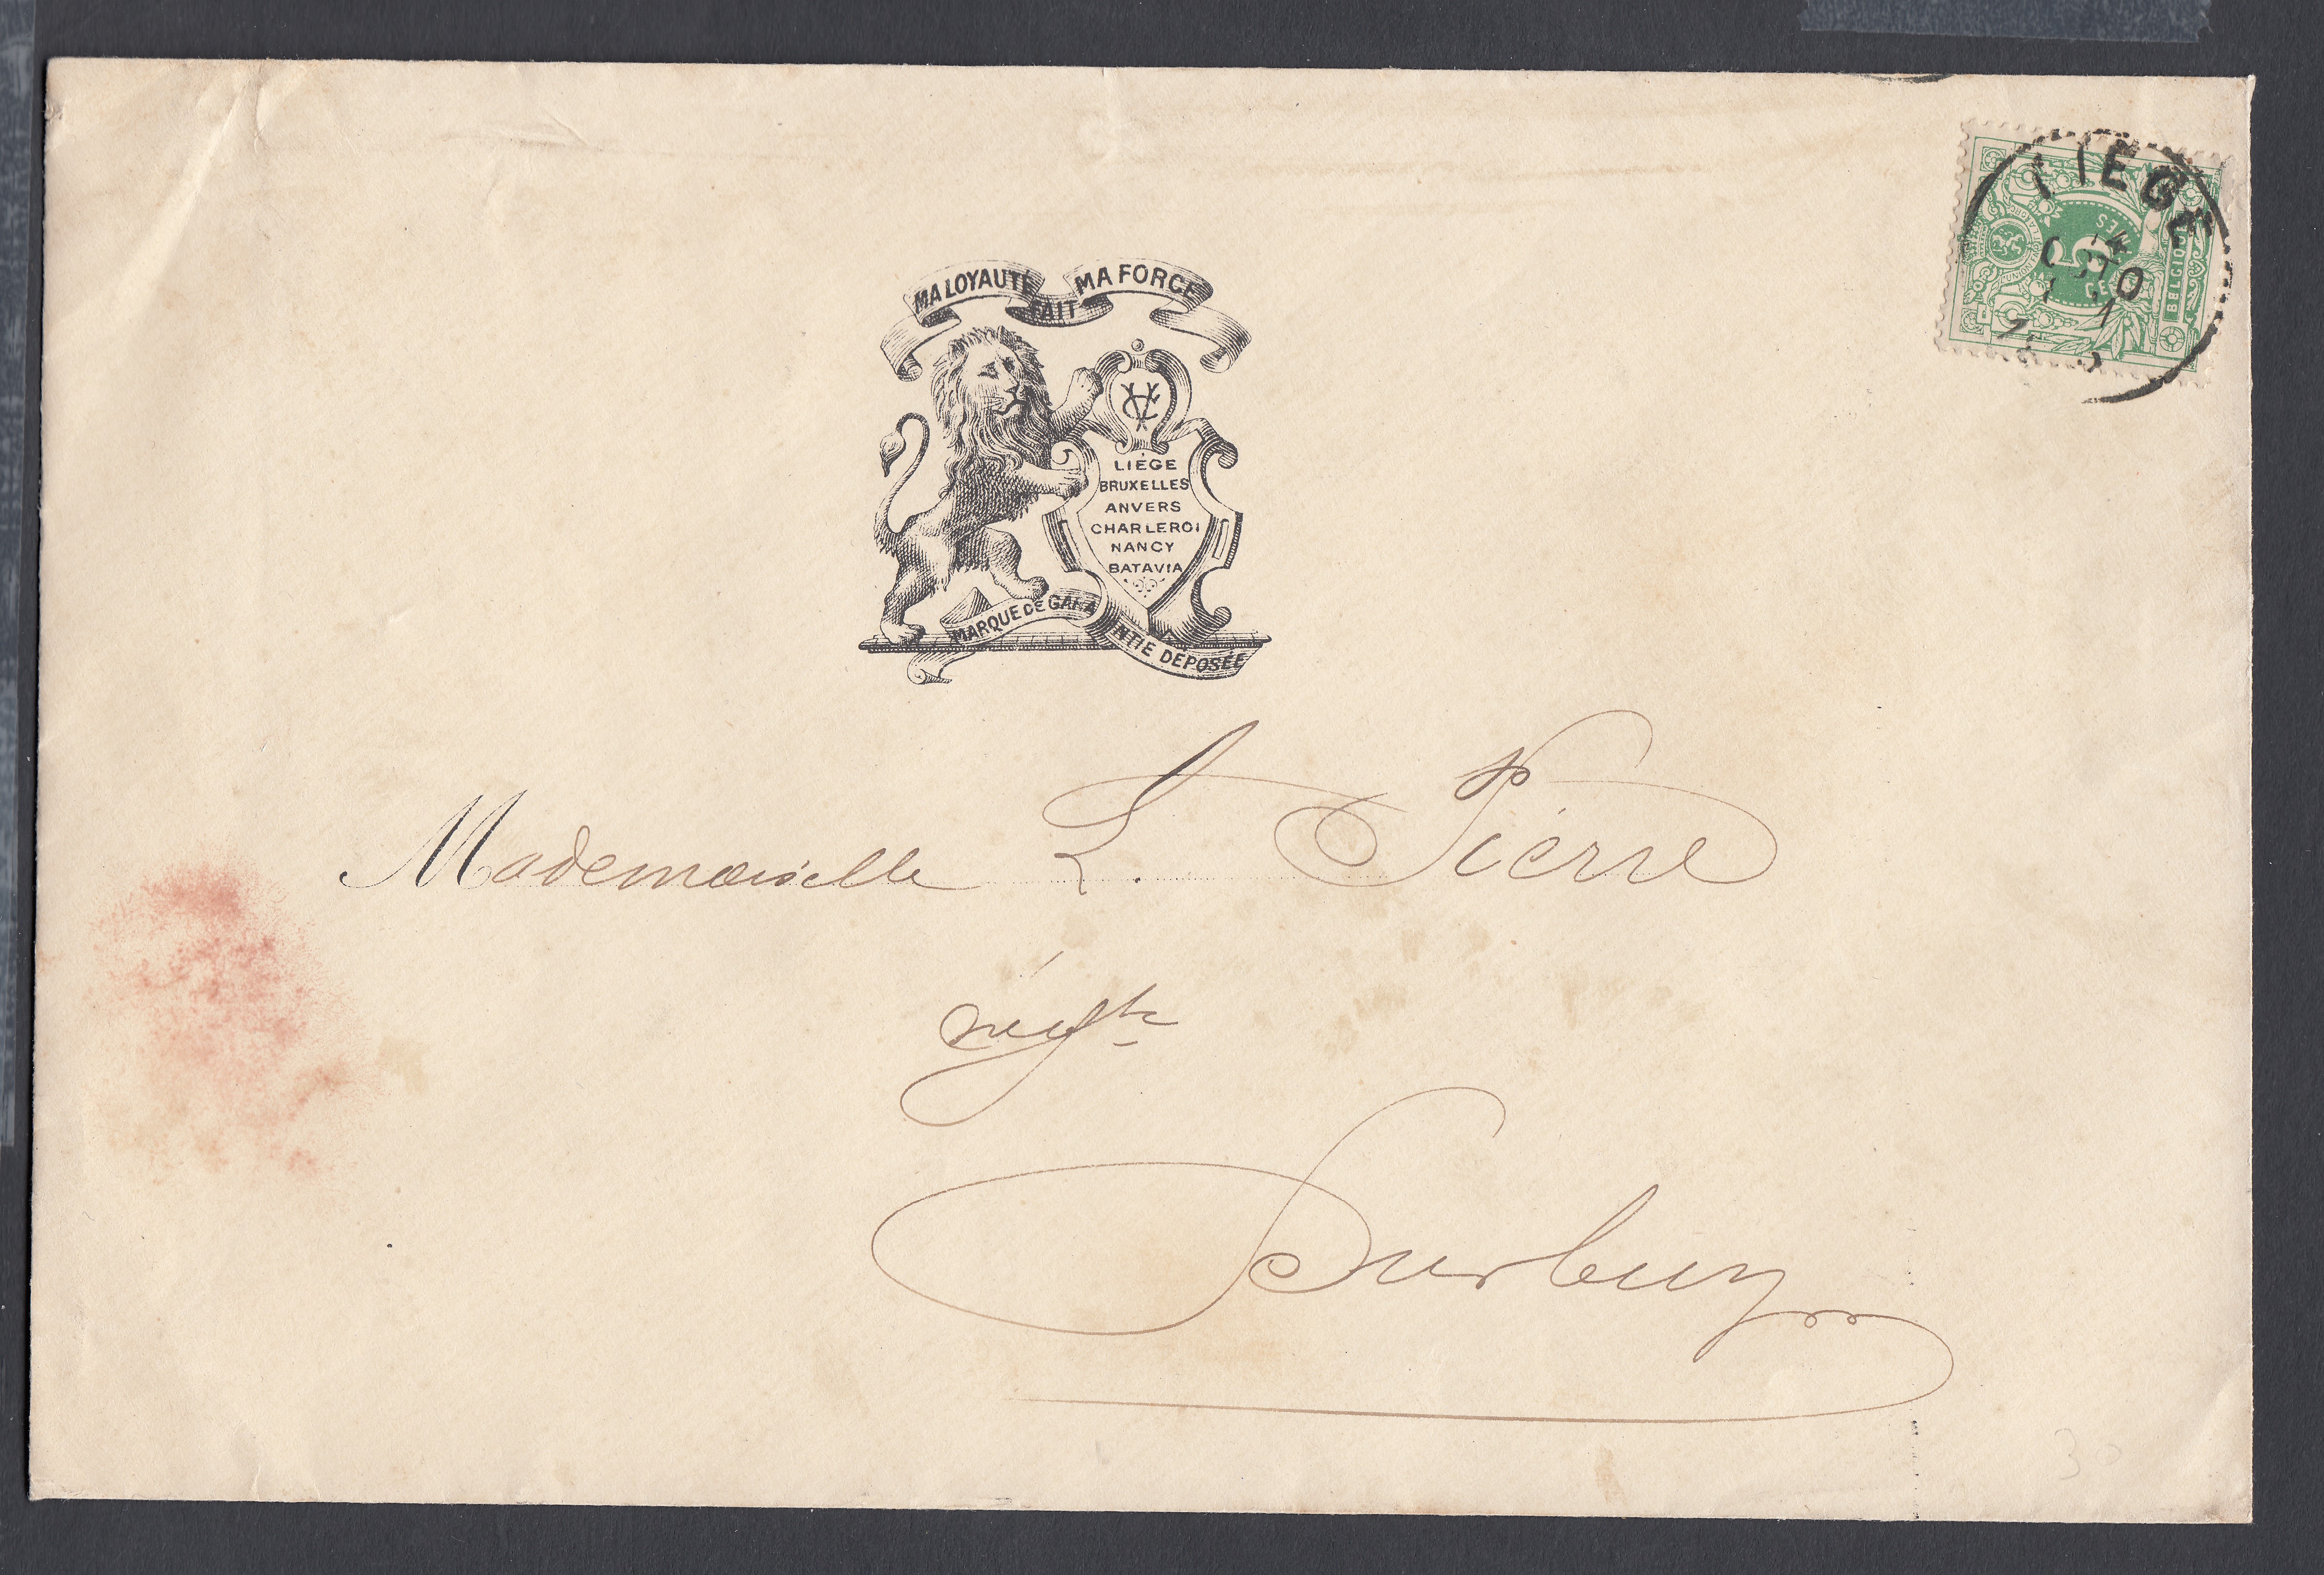 MA LOYAUTÉ FAIT MA FORCE
LIÉGE
BRUXELLES
ANVERS
CHARLEROI
NANCY
BATAVIA
MARQUE DE GARANTIE DÉPOSÉE
LIEGE
5
BELGIQUE
Mademoiselle L. Pierre
négte
Durbuy
30